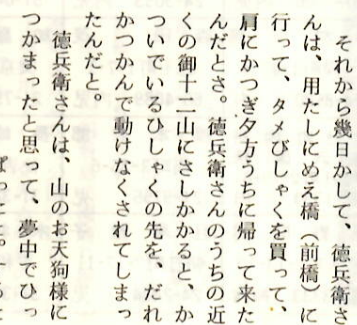 それから幾日かして、徳兵衛さ
んは、用たしにめえ橋（前橋）に
行って、タメびしゃくを買って、
肩にかつぎ夕方うちに帰って来た
んだとさ。徳兵衛さんのうちの近
くの御十二山にさしかかると、か
ついでいるひしゃくの先を、だれ
かつかんで動けなくされてしまっ
たんだと。
徳兵衛さんは、山のお天狗様に
つかまったと思って、夢中でひっ